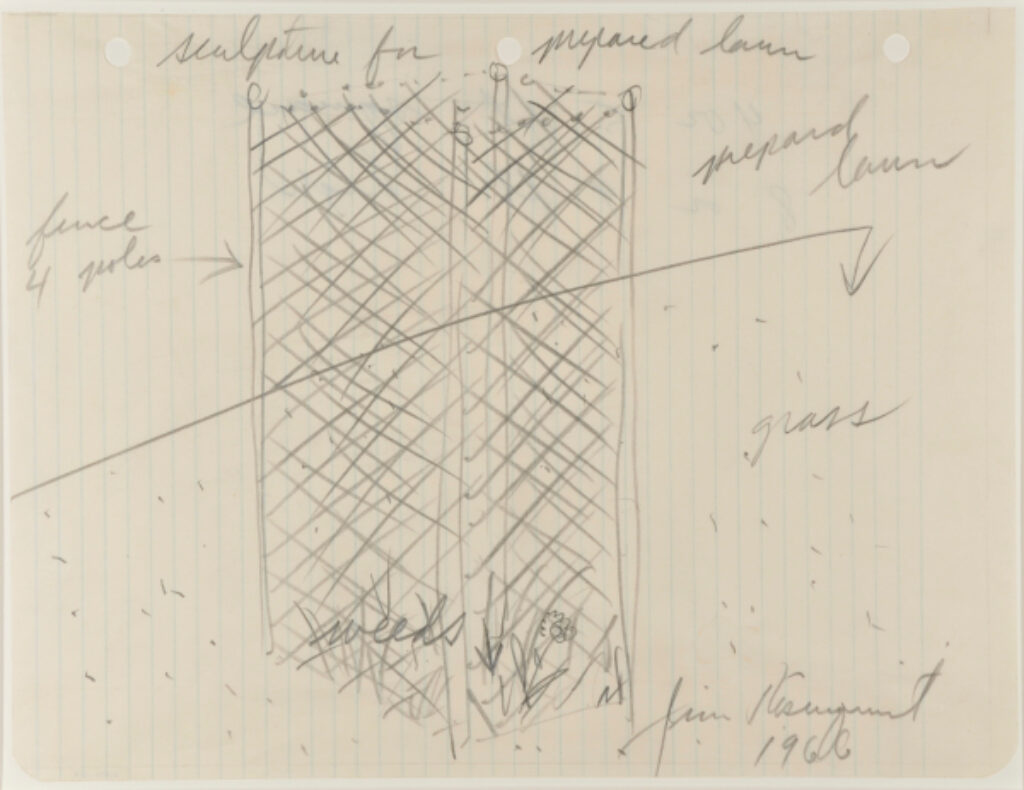 sculpture for prepared lawn
prepared
lawn
fence
4 poles
grass
weeds
Jim Rosenquist
1966